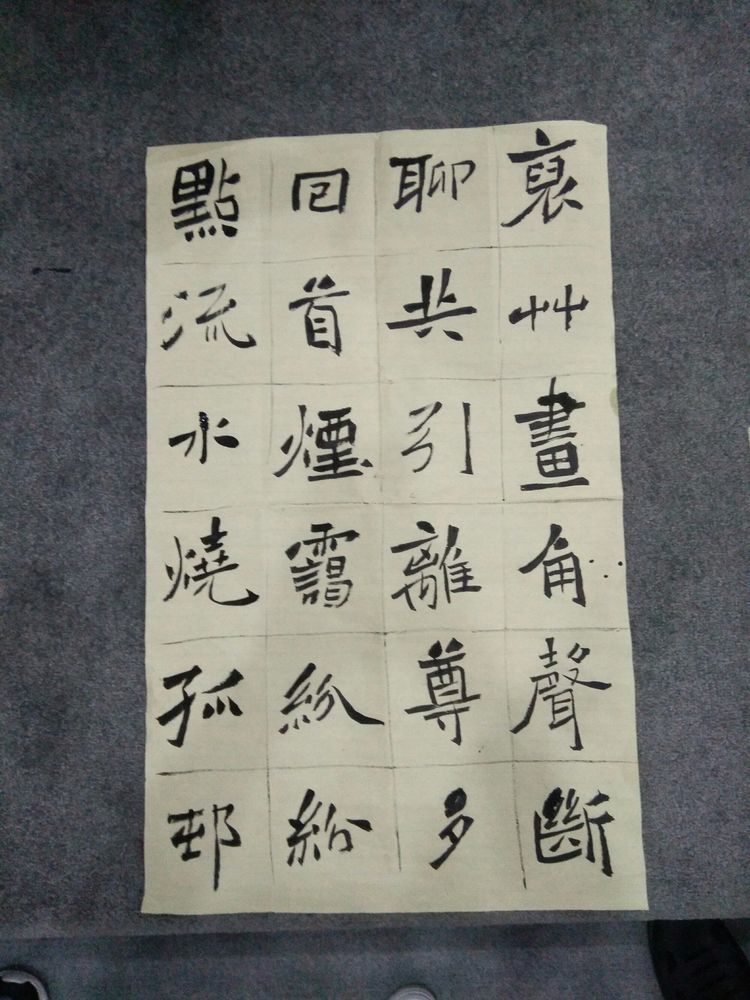 衰艸畫角聲斷
聊共引離尊多
回首煙靄紛紛
點流水燒孤邨